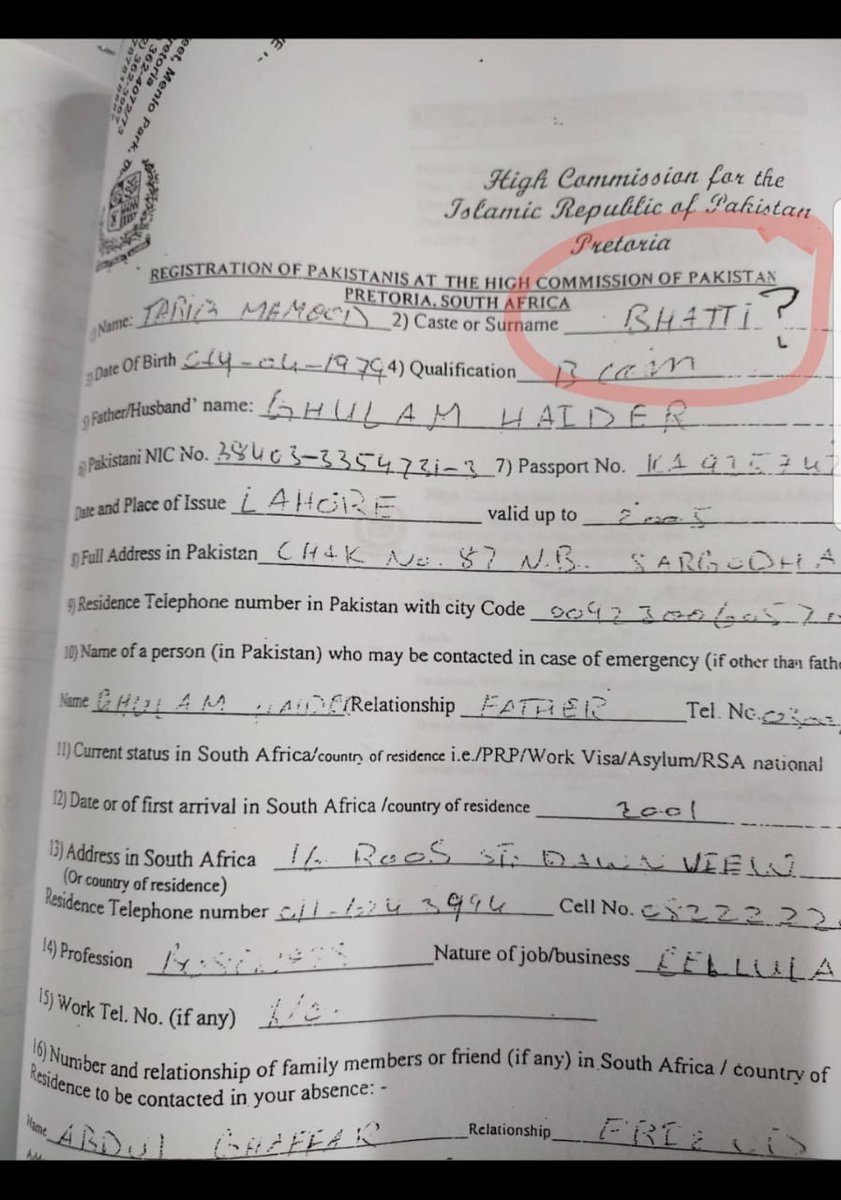 eet, Menlo Park,
Pretoria
High Commission for the
Islamic Republic of Pakistan
Pretoria
REGISTRATION OF PAKISTANIS AT THE HIGH COMMISSION OF PAKISTAN
PRETORIA, SOUTH AFRICA
Name: TARIQ MAMOOD 2) Caste or Surname BHATTI ?
Date Of Birth 04-04-1979 4) Qualification B com
5) Father/Husband' name: GHULAM HAIDER
Pakistani NIC No. 38403-3354731-3 7) Passport No. KA
Date and Place of Issue LAHORE valid up to 2005
8) Full Address in Pakistan CHAK No. 87 N.B. SARGODHA
9) Residence Telephone number in Pakistan with city Code
10) Name of a person (in Pakistan) who may be contacted in case of emergency (if other than fath
Name GHULAM HAIDER Relationship FATHER Tel. No.
11) Current status in South Africa/country of residence i.e./PRP/Work Visa/Asylum/RSA national
12) Date or of first arrival in South Africa /country of residence 2001
13) Address in South Africa 16 ROOS ST. DAWN VIEW
(Or country of residence)
Residence Telephone number Cell No.
14) Profession Business Nature of job/business CELLULA
15) Work Tel. No. (if any)
16) Number and relationship of family members or friend (if any) in South Africa / country of
Residence to be contacted in your absence: -
Name ABDUL GHAFFAR Relationship FRIEND